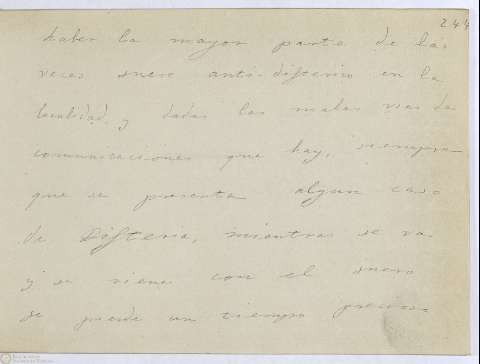 244
haber la mayor parte de las
veces suero anti-diftérico en la
localidad, y dadas las malas vias de
comunicaciones que hay, siempre
que se presenta algun caso
de Difteria, mientras se va
y se viene con el suero
se pierde un tiempo precioso